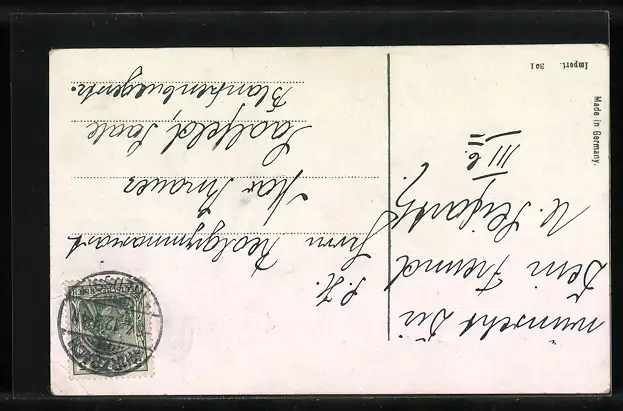 wünscht Dir
Dein Freund
K. Seifarth
III 6.
S. H.
Herrn Realgymnasiast
Max Knauer
Saalfeld, Saale
Blankenburgerstr.
Import. 391
Made in Germany.